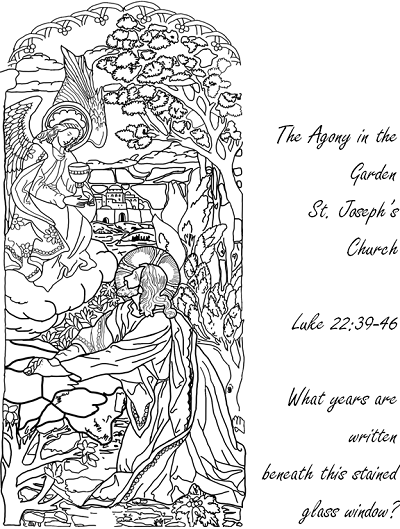 The Agony in the
Garden
St. Joseph's
Church
Luke 22:39-46
What years are
written
beneath this stained
glass window?